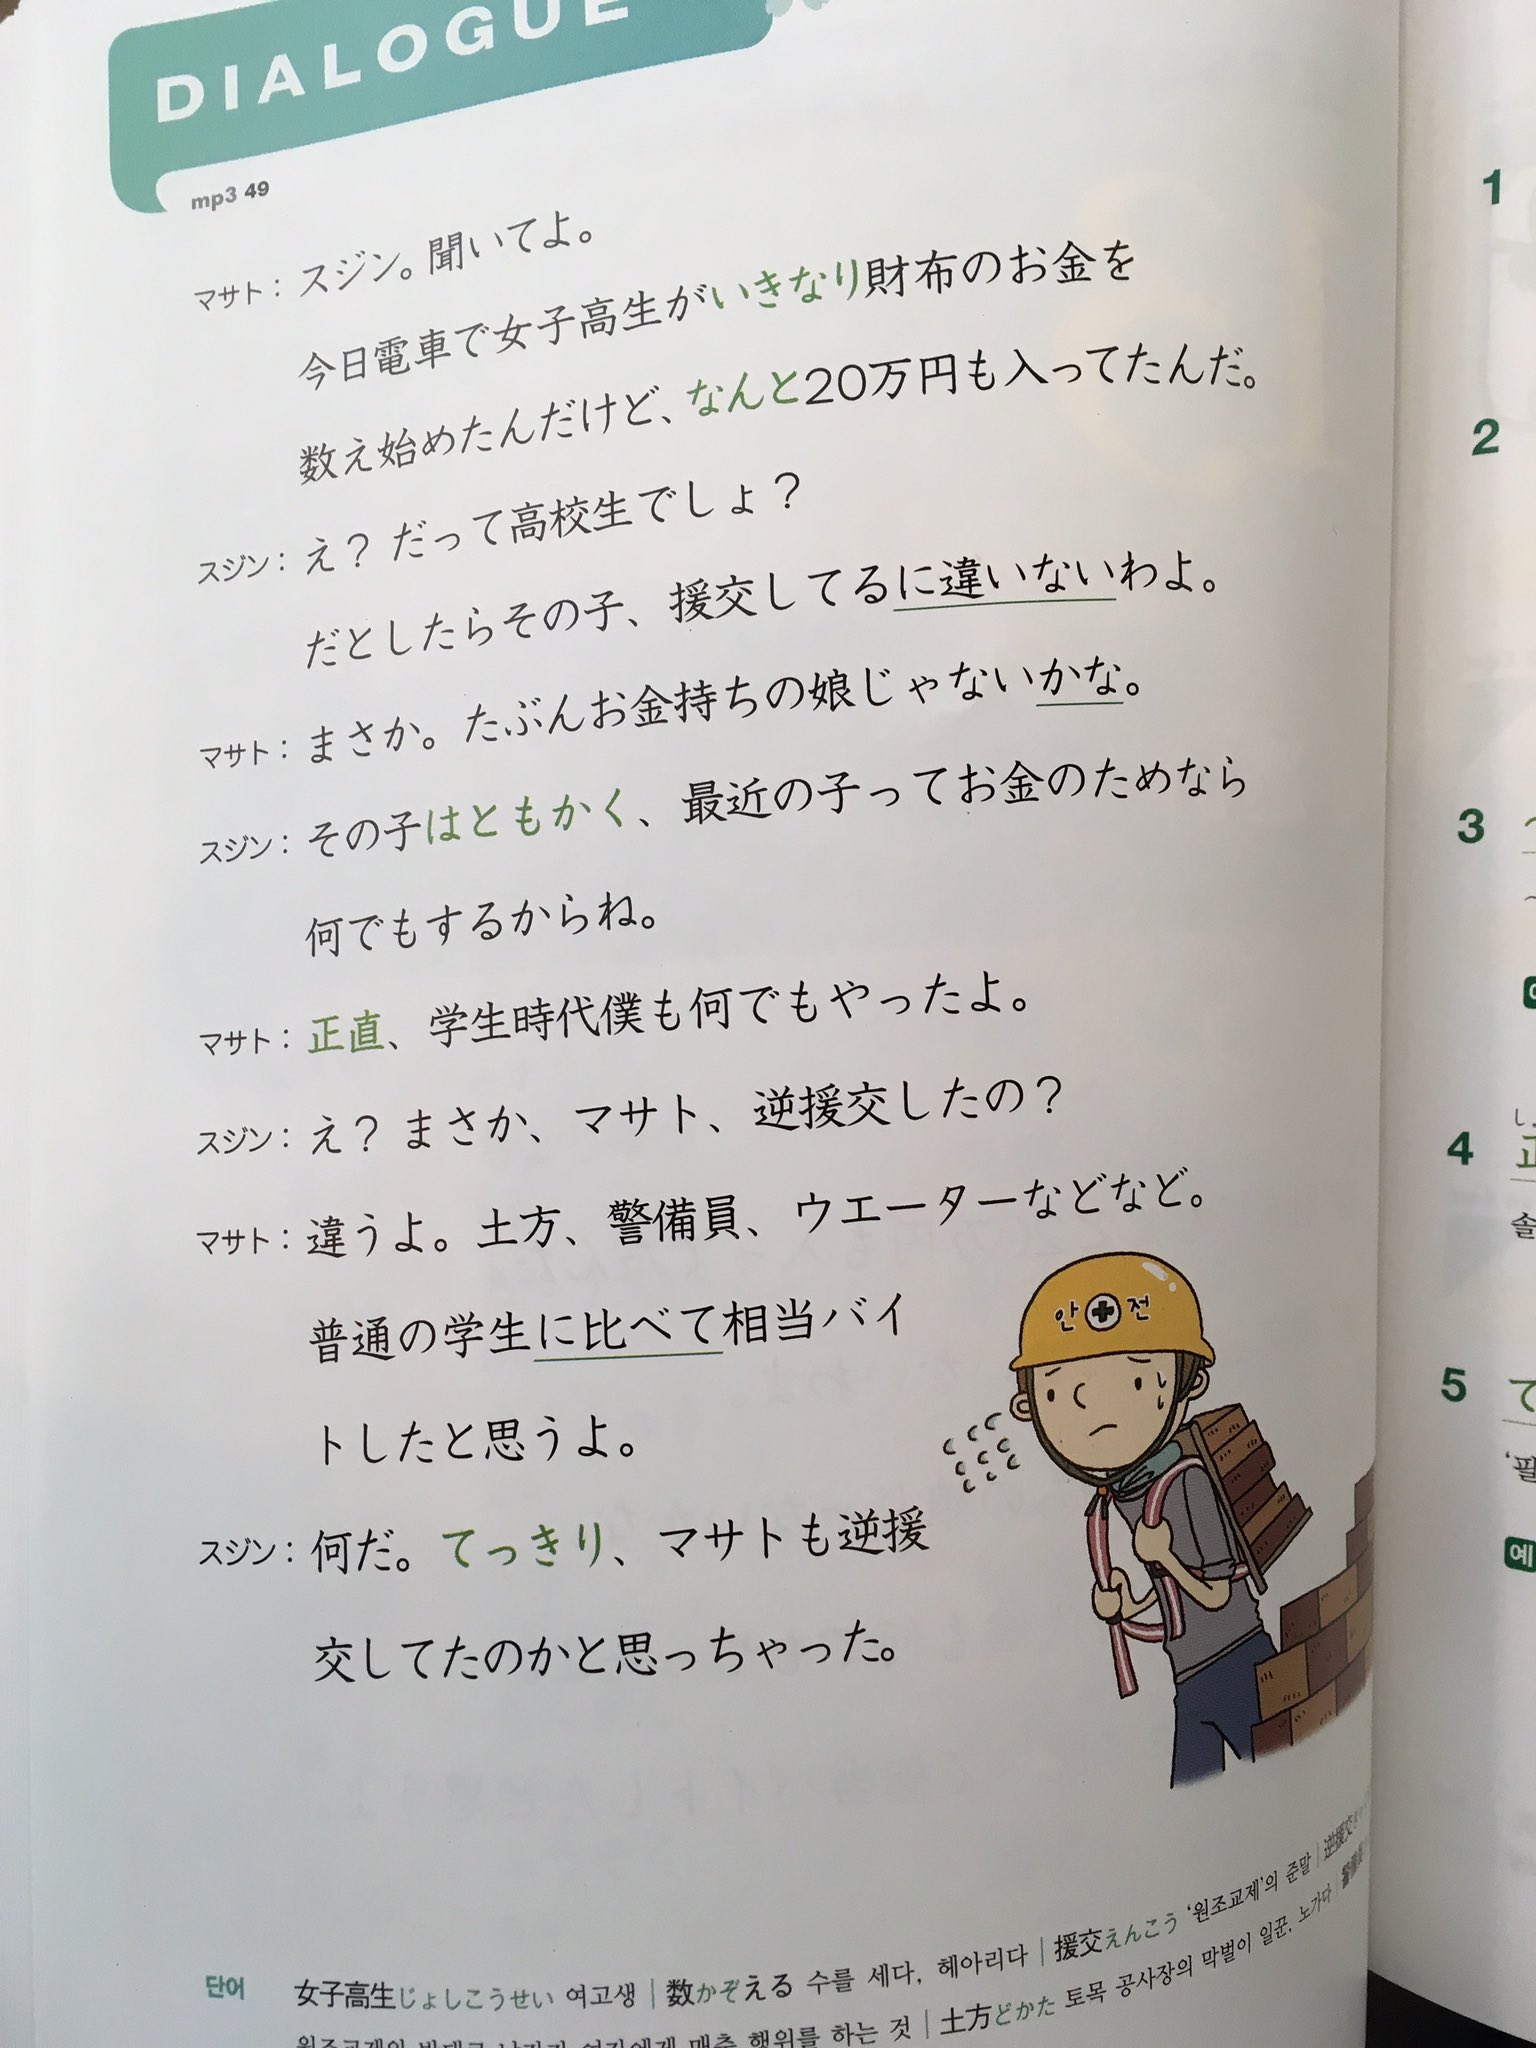 DIALOGUE
mp3 49
マサト： スジン。聞いてよ。
今日電車で女子高生がいきなり財布のお金を
数え始めたんだけど、なんと20万円も入ってたんだ。
スジン： え？ だって高校生でしょ？
だとしたらその子、援交してるに違いないわよ。
マサト： まさか。たぶんお金持ちの娘じゃないかな。
スジン： その子はともかく、最近の子ってお金のためなら
何でもするからね。
マサト： 正直、学生時代僕も何でもやったよ。
スジン： え？ まさか、マサト、逆援交したの？
マサト： 違うよ。土方、警備員、ウエーターなどなど。
普通の学生に比べて相当バイ
トしたと思うよ。
スジン： 何だ。てっきり、マサトも逆援
交してたのかと思っちゃった。
안 전
단어 女子高生じょしこうせい 여고생 | 数かぞえる 수를 세다, 헤아리다 | 援交えんこう '원조교제'의 준말 | 逆援交
하는 것 | 土方どかた 토목 공사장의 막벌이 일꾼, 노가다 |
1
2
3
4
솔
5
て
필,
예